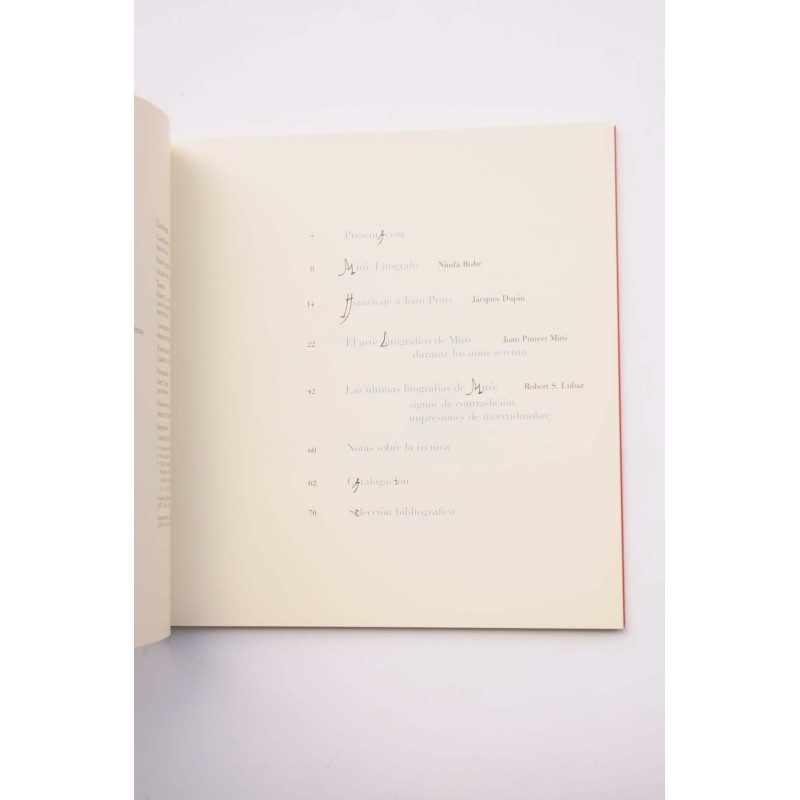 7 Presentación
8 Miró Litógrafo Ninfa Bisbe
14 Homenaje a Joan Prats Jacques Dupin
22 El arte Litográfico de Miró Joan Punyet Miró
durante los años setenta
42 Las últimas litografías de Miró: Robert S. Lubar
signos de contradicion,
impresiones de incertidumbre
60 Notas sobre la técnica
62 Catalogación
70 Selección bibliográfica